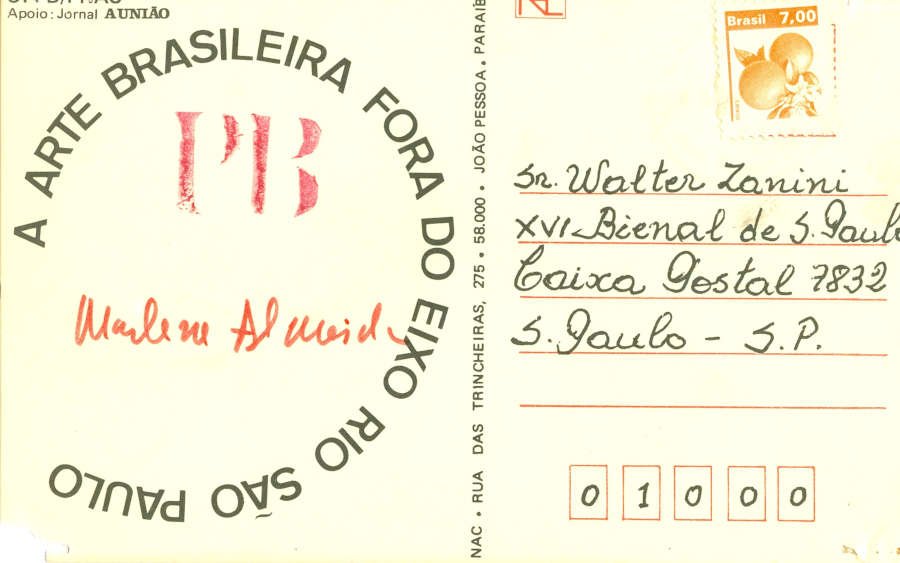 Apoio: Jornal A UNIÃO
A ARTE BRASILEIRA FORA DO EIXO RIO SÃO PAULO
PB
Marlene Almeida
NAC • RUA DAS TRINCHEIRAS, 275 • 58.000 • JOÃO PESSOA • PARAÍB
Brasil 7,00
Sr. Walter Zanini
XVI Bienal de S. Paulo
Caixa Postal 7832
S. Paulo - S.P.
0 1 0 0 0